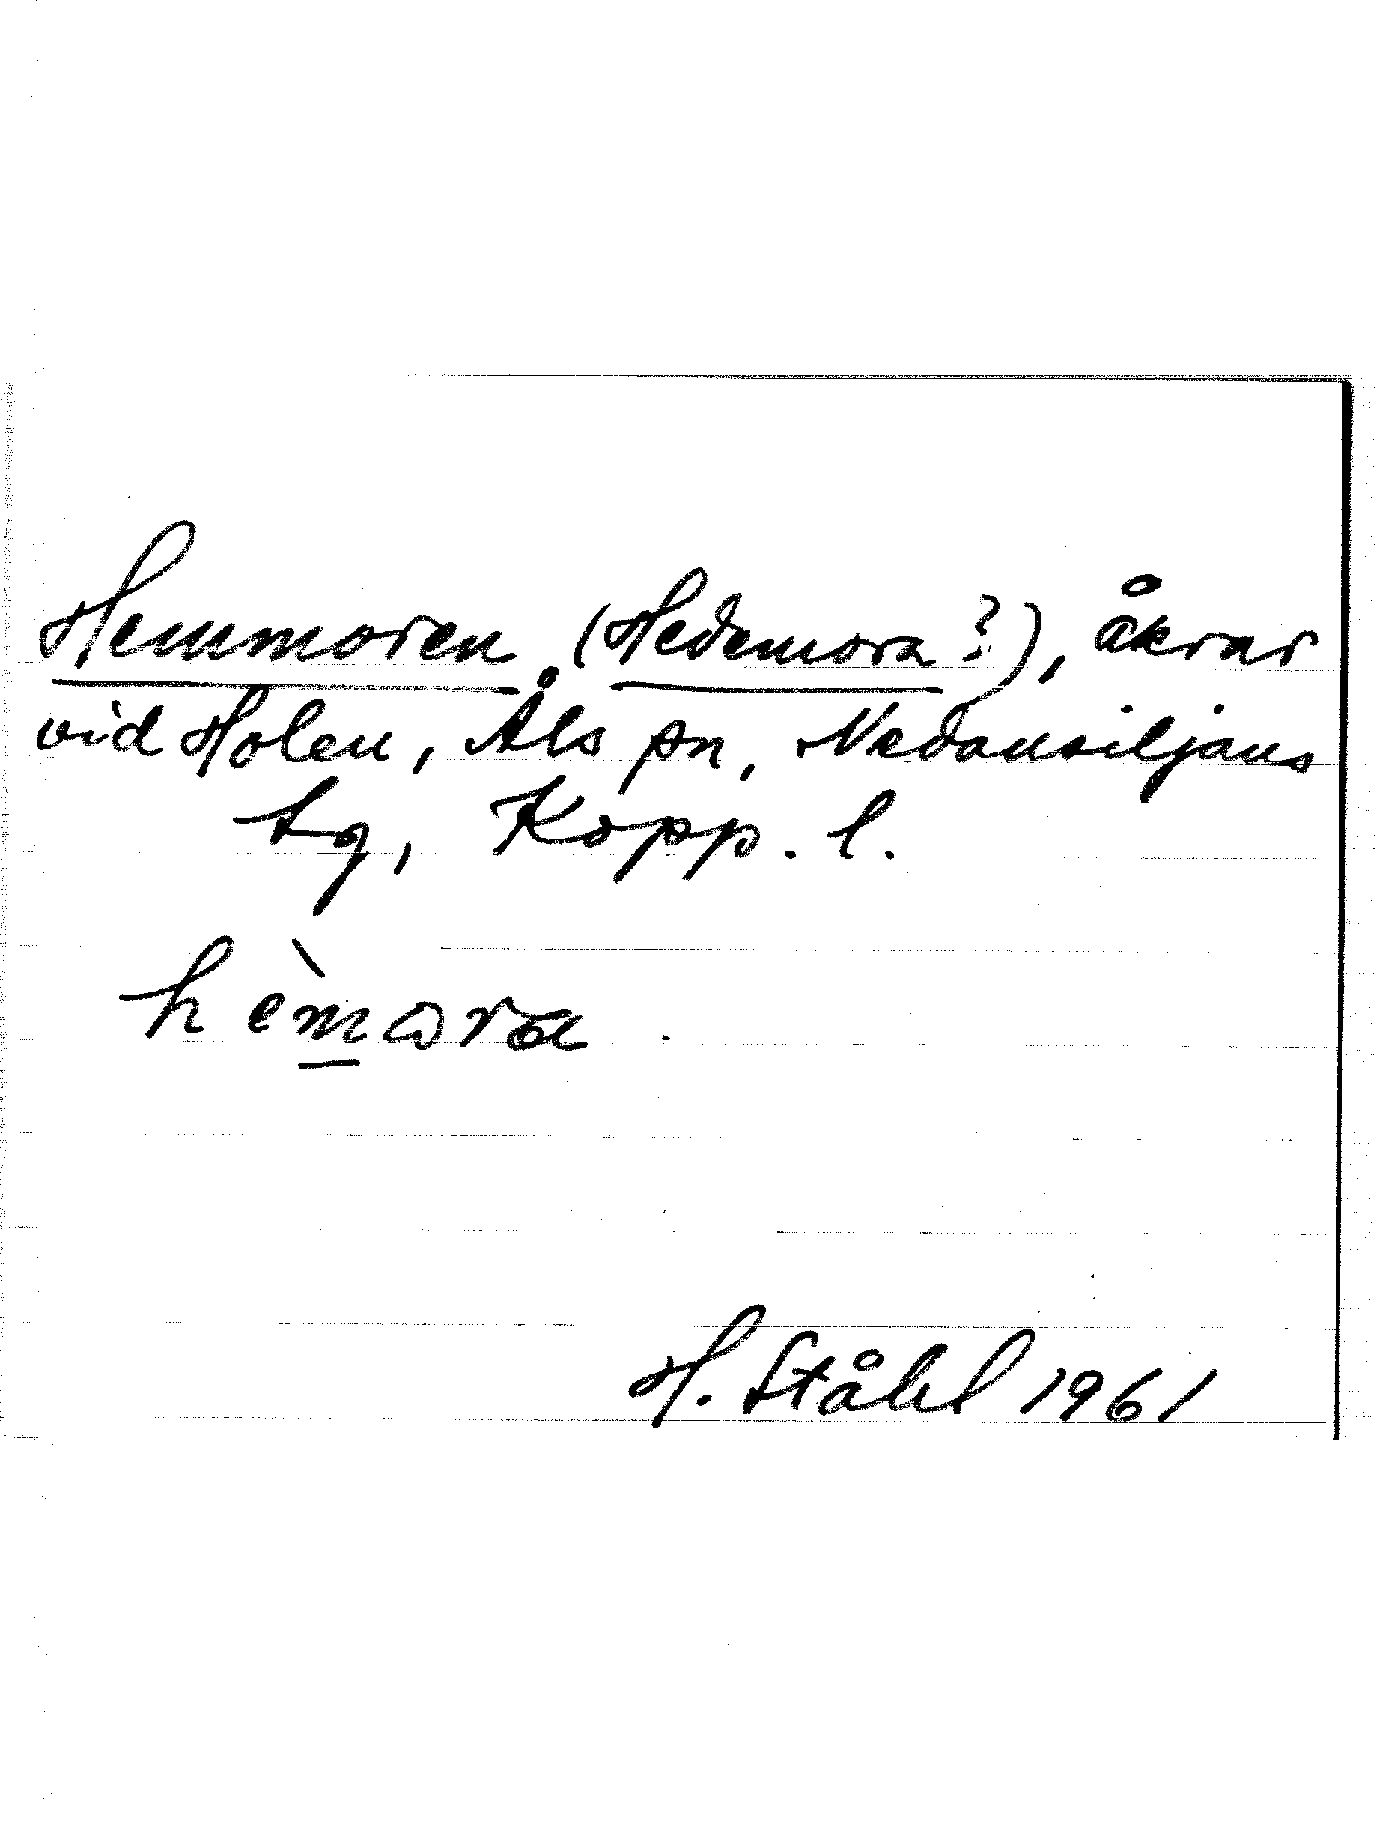 Hemmoren (Hedemora?), åkrar
vid Holen, Åls sn, Nedansiljans
tg, Kopp. l.
hèm̲ωra
H. Ståhl 1961